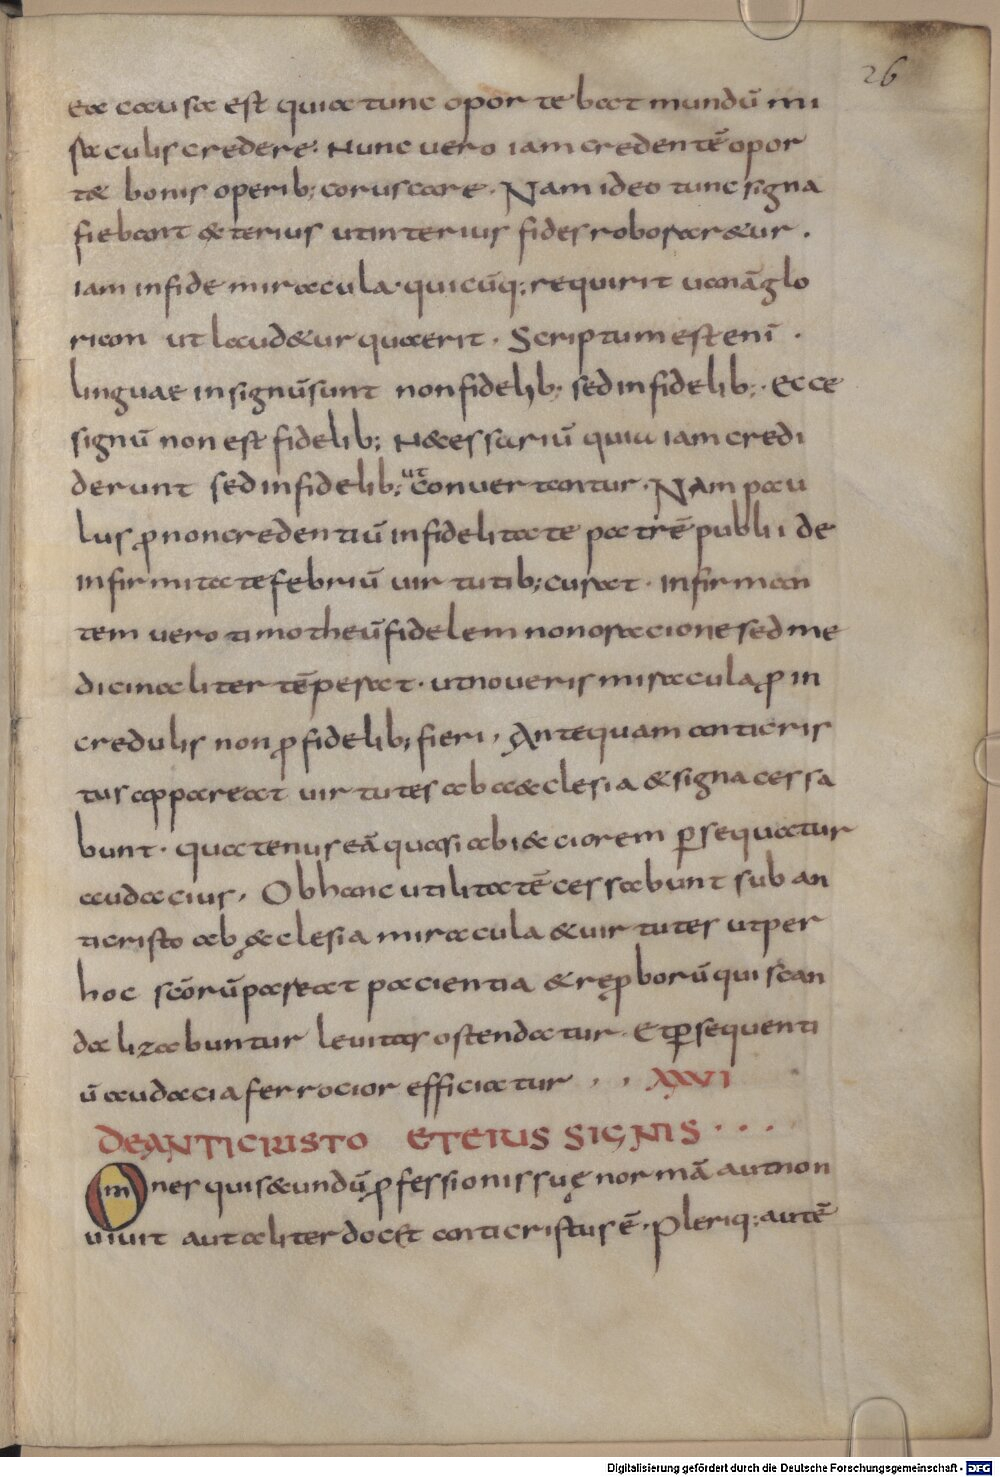 26
ea causa est quia tunc oportebat mundū mi
raculis credere. Nunc vero iam credentē opor
t& bonis operib; coruscare. Nam ideo tunc signa
fiebant &terius ut interius fides roborar&ur.
iam in fide miracula. quicūq; requirit vanā glo
riam ut laud&ur quaerit. Scriptum est enī.
linguae in signū sunt non fidelib; sed infidelib;. Ecce
signū non est fidelib; N&essariū quia iam credi
derunt sed infidelib; ut convertantur. Nam pau
lus ꝓ non credentiū infidelitate patrē publii de
infirmitate febriū virtutib; curat. infirman
tem vero timotheū fidelem non oracione sed me
dicinaliter tēperat. ut noveris miracula ꝓ in
credulis non ꝓ fidelib; fieri. Antequam anticris
tus appareat virtutes ab a&clesia & signa cessa
bunt. quatenus eā quasi abi&ciorem ꝑsequatur
audacius. Ob hanc utilitatē cessabunt sub an
ticristo ab ę&clesia miracula & virtutes ut per
hoc scōrū pareat pacientia & reꝓborū qui scan
dalizabuntur levitas ostendatur. Et ꝑsequenti
ū audacia ferrocior efficiatur . , XXVI
DE ANTICRISTO ET EIUS SIGNIS . . .
Omnes qui s&undū ꝓfessionis suę normā aut non
vivit aut aliter docet anticristus ē. Pleriq; autē
Digitalisierung gefördert durch die Deutsche Forschungsgemeinschaft - DFG